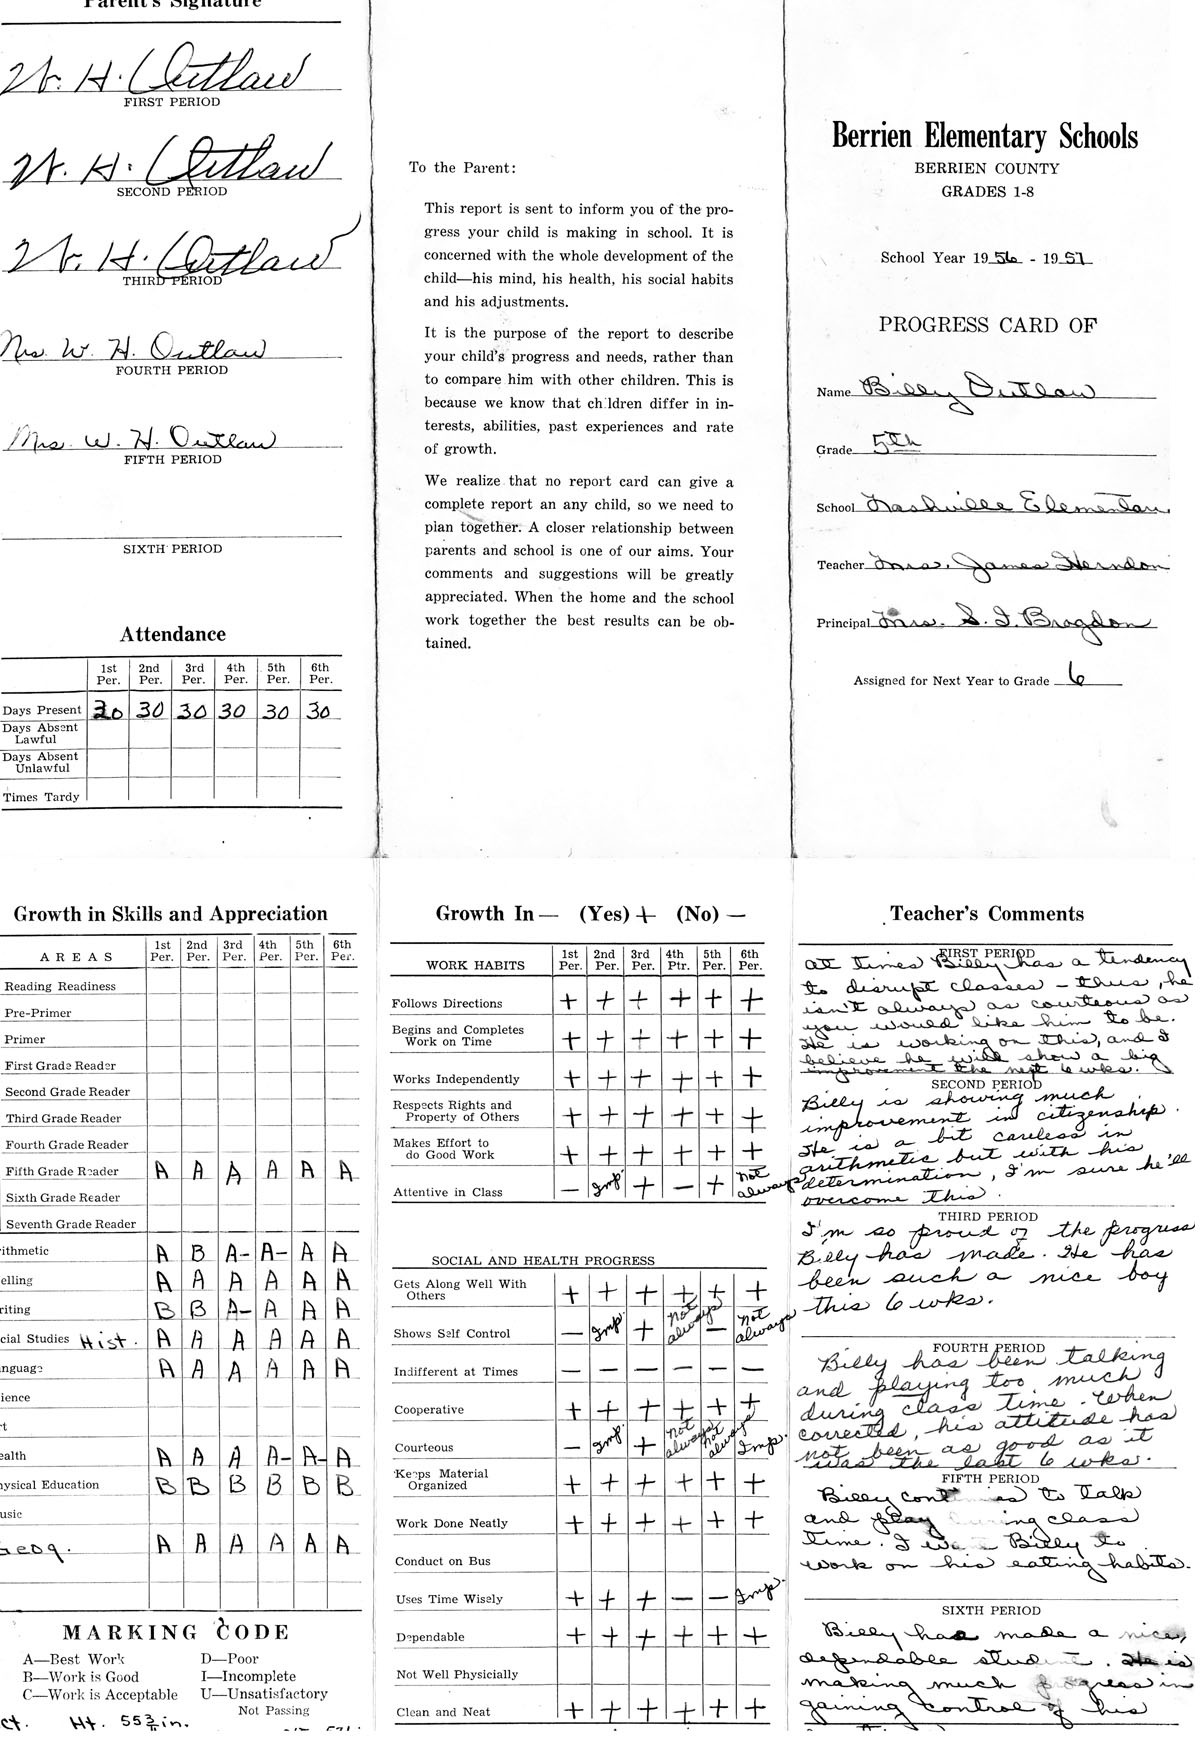 Parent's Signature
W. H. Outlaw
FIRST PERIOD
W. H. Outlaw
SECOND PERIOD
W. H. Outlaw
THIRD PERIOD
Mrs. W. H. Outlaw
FOURTH PERIOD
Mrs. W. H. Outlaw
FIFTH PERIOD
SIXTH PERIOD
Attendance
1st Per. 2nd Per. 3rd Per. 4th Per. 5th Per. 6th Per.
Days Present 30 30 30 30 30 30
Days Absent Lawful
Days Absent Unlawful
Times Tardy
To the Parent:
This report is sent to inform you of the pro-
gress your child is making in school. It is
concerned with the whole development of the
child—his mind, his health, his social habits
and his adjustments.
It is the purpose of the report to describe
your child's progress and needs, rather than
to compare him with other children. This is
because we know that children differ in in-
terests, abilities, past experiences and rate
of growth.
We realize that no report card can give a
complete report an any child, so we need to
plan together. A closer relationship between
parents and school is one of our aims. Your
comments and suggestions will be greatly
appreciated. When the home and the school
work together the best results can be ob-
tained.
Berrien Elementary Schools
BERRIEN COUNTY
GRADES 1-8
School Year 1956 - 1957
PROGRESS CARD OF
Name Billy Outlaw
Grade 5th
School Nashville Elementary
Teacher Mrs. James Herndon
Principal Mrs. S. I. Bragdon
Assigned for Next Year to Grade 6
Growth in Skills and Appreciation
AREAS 1st Per. 2nd Per. 3rd Per. 4th Per. 5th Per. 6th Per.
Reading Readiness
Pre-Primer
Primer
First Grade Reader
Second Grade Reader
Third Grade Reader
Fourth Grade Reader
Fifth Grade Reader A A A A A A
Sixth Grade Reader
Seventh Grade Reader
ithmetic A B A- A- A A
elling A A A A A A
riting B B A- A A A
cial Studies Hist. A A A A A A
nguage A A A A A A
ience
rt
ealth A A A A- A- A
ysical Education B B B B B B
usic
Geog. A A A A A A
MARKING CODE
A—Best Work D—Poor
B—Work is Good I—Incomplete
C—Work is Acceptable U—Unsatisfactory
Not Passing
ct. Ht. 55 3/4 in.
Growth In— (Yes) + (No) —
WORK HABITS 1st Per. 2nd Per. 3rd Per. 4th Ptr. 5th Per. 6th Per.
Follows Directions + + + + + +
Begins and Completes Work on Time + + + + + +
Works Independently + + + + + +
Respects Rights and Property of Others + + + + + +
Makes Effort to do Good Work + + + + + +
Attentive in Class — Imp. + — + not always
SOCIAL AND HEALTH PROGRESS
Gets Along Well With Others + + + + + +
Shows Self Control — Imp. + not always — not always
Indifferent at Times — — — — — —
Cooperative + + + + + +
Courteous — Imp. + not always not always Imp.
Keeps Material Organized + + + + + +
Work Done Neatly + + + + + +
Conduct on Bus
Uses Time Wisely + + + — — Imp.
Dependable + + + + + +
Not Well Physicially
Clean and Neat + + + + + +
Teacher's Comments
FIRST PERIOD
At times Billy has a tendency
to disrupt classes - thus, he
isn't always as courteous as
you would like him to be.
He is working on this, and I
believe he will show a big
improvement the next 6 wks.
SECOND PERIOD
Billy is showing much
improvement in citizenship.
He is a bit careless in
arithmetic but with his
determination, I'm sure he'll
overcome this.
THIRD PERIOD
I'm so proud of the progress
Billy has made. He has
been such a nice boy
this 6 wks.
FOURTH PERIOD
Billy has been talking
and playing too much
during class time. When
corrected, his attitude has
not been as good as it
was the last 6 wks.
FIFTH PERIOD
Billy continues to talk
and play during class
time. I want Billy to
work on his eating habits.
SIXTH PERIOD
Billy has made a nice,
dependable student. He is
making much progress in
gaining control of his